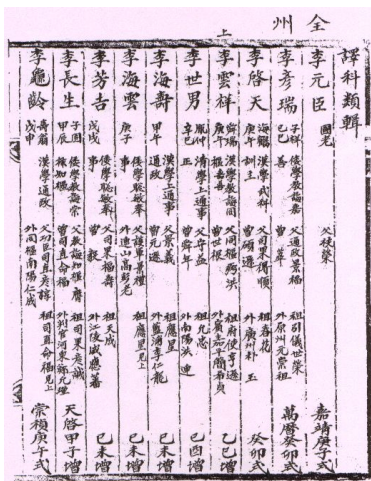 全州
上
譯科類輯
李元臣 國光 父枝榮 嘉靖庚子式
李彥瑞 子祥 己巳 倭學教誨嘉善 父通政景福 曾 祖引儀世榮 外原州元崇祖 萬曆癸卯式
李啓天 庚午 漢學武科訓主 父司果順 曾碩遵 祖春花 外廣州朴玉 癸卯式
李雲祥 舜瑞 庚午 漢學教誨同樞嘉善 父同樞 曾世根 祖府使亨遜 外嘉平簡希貞 乙巳增
李世男 胤仲 辛巳 清學上通事正 父守益 曾舜年 祖允忠 外南陽洪連 己酉增
李海壽 甲午 漢學上通事通政 父景義 曾元遜 祖應星 外藍浦李仁龍 己未增
李海雲 庚子 倭學聰敏奉事 父護軍景禮 外連山高彭光 祖應星見上 己未增
李芳吉 戊戌 倭學聰敏奉事 父司果福壽 曾毅 祖天成 外江陵咸應 己未增
李長生 子固 甲辰 倭學教誨崇祿知樞 父教誨知樞膺 曾司直命福 祖司果彥誠 外判官河東鄭允理 天啓甲子增
李龜齡 壽翁 戊申 漢學通政 父司直彥 外同樞南陽仁誠 祖司直命福見上 崇禎庚午式